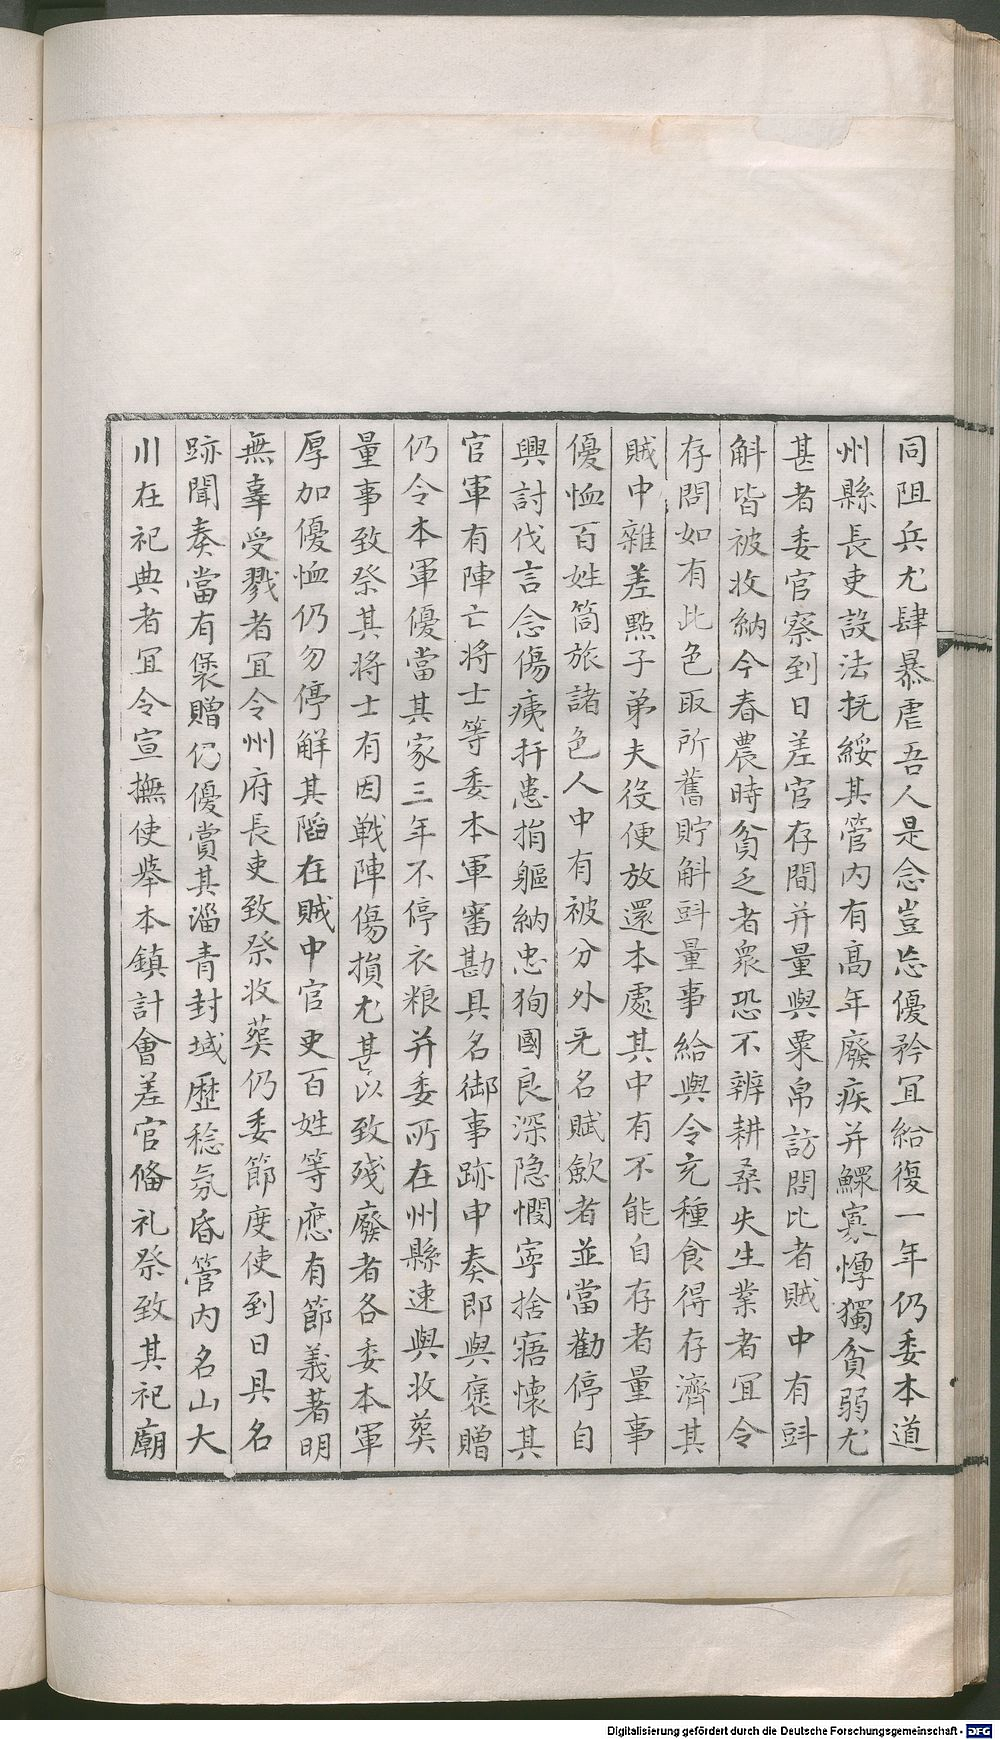 同阻兵尤肆暴虐吾人是念豈忘優矜冝給復一年仍委本道
州縣長吏設法撫綏其管内有高年廢疾并鰥寡惸獨貧弱尤
甚者委官察到日差官存間并量與粟帛訪問比者賊中有㪷
斛皆被收納今春農時貧乏者衆恐不辨耕桑失生業者冝令
存問如有此色取所舊貯斛㪷量事給與令充種食得存濟其
賊中雜差點子弟夫役便放還本處其中有不能自存者量事
優恤百姓筒旅諸色人中有被分外旡名賦歛者並當勸停自
興討伐言念傷痍扞患捐軀納忠狥國良深隐憫寜捨寤懐其
官軍有陣亡将士等委本軍審勘具名御事跡申奏即與褒贈
仍令本軍優當其家三年不停衣粮并委所在州縣速與收葬
量事致祭其将士有因戦陣傷損尤甚以致殘廢者各委本軍
厚加優恤仍勿停解其䧟在賊中官吏百姓等應有節義著明
無辜受戮者冝令州府長吏致祭收葬仍委節度使到日具名
跡聞奏當有褒贈仍優賞其淄青封域歴稔氛昏管内名山大
川在祀典者冝令宣撫使舉本鎮計會差官偹礼祭致其祀廟
Digitalisierung gefördert durch die Deutsche Forschungsgemeinschaft - DFG